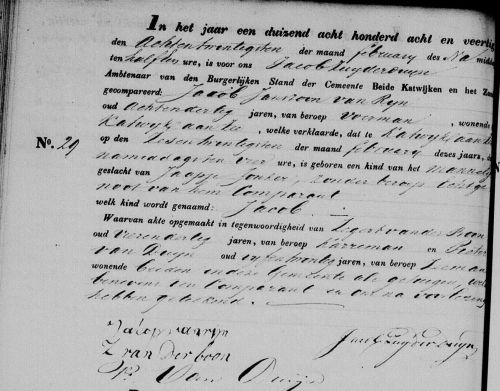 In het jaar een duizend acht honderd acht en veertig
den Achtentwintigsten der maand february des Na middags
ten half ure, is voor ons Jacob Zuyderduyn
Ambtenaar van den Burgerlijken Stand der Gemeente Beide Katwijken en het Zand
gecompareerd: Jacob Janszoon van Ryn
oud Achtendertig jaren, van beroep Voerman, wonende
Katwyk aan Zee, welke verklaarde, dat te Katwyk aan Zee
op den Zesentwintigsten der maand february dezes jaars, des
namiddags ten vier ure, is geboren een kind van het mannelyk
geslacht van Jaapje Jonker, zonder beroep Echtge
noot van hem Comparant
welk kind wordt genaamd: Jacob
Waarvan akte opgemaakt in tegenwoordigheid van Zegert van der Boon
oud Vierendertig jaren, van beroep en Pieter
van Duyn oud jaren, van beroep Zeeman
wonende beiden in deze Gemeente als getuigen, welke
benevens den Comparant en ons na voorlezing
hebben geteekend.
No. 29
Jacop van ryn
Z van der boon
Jacob Zuyderduyn
P. Van Duijn